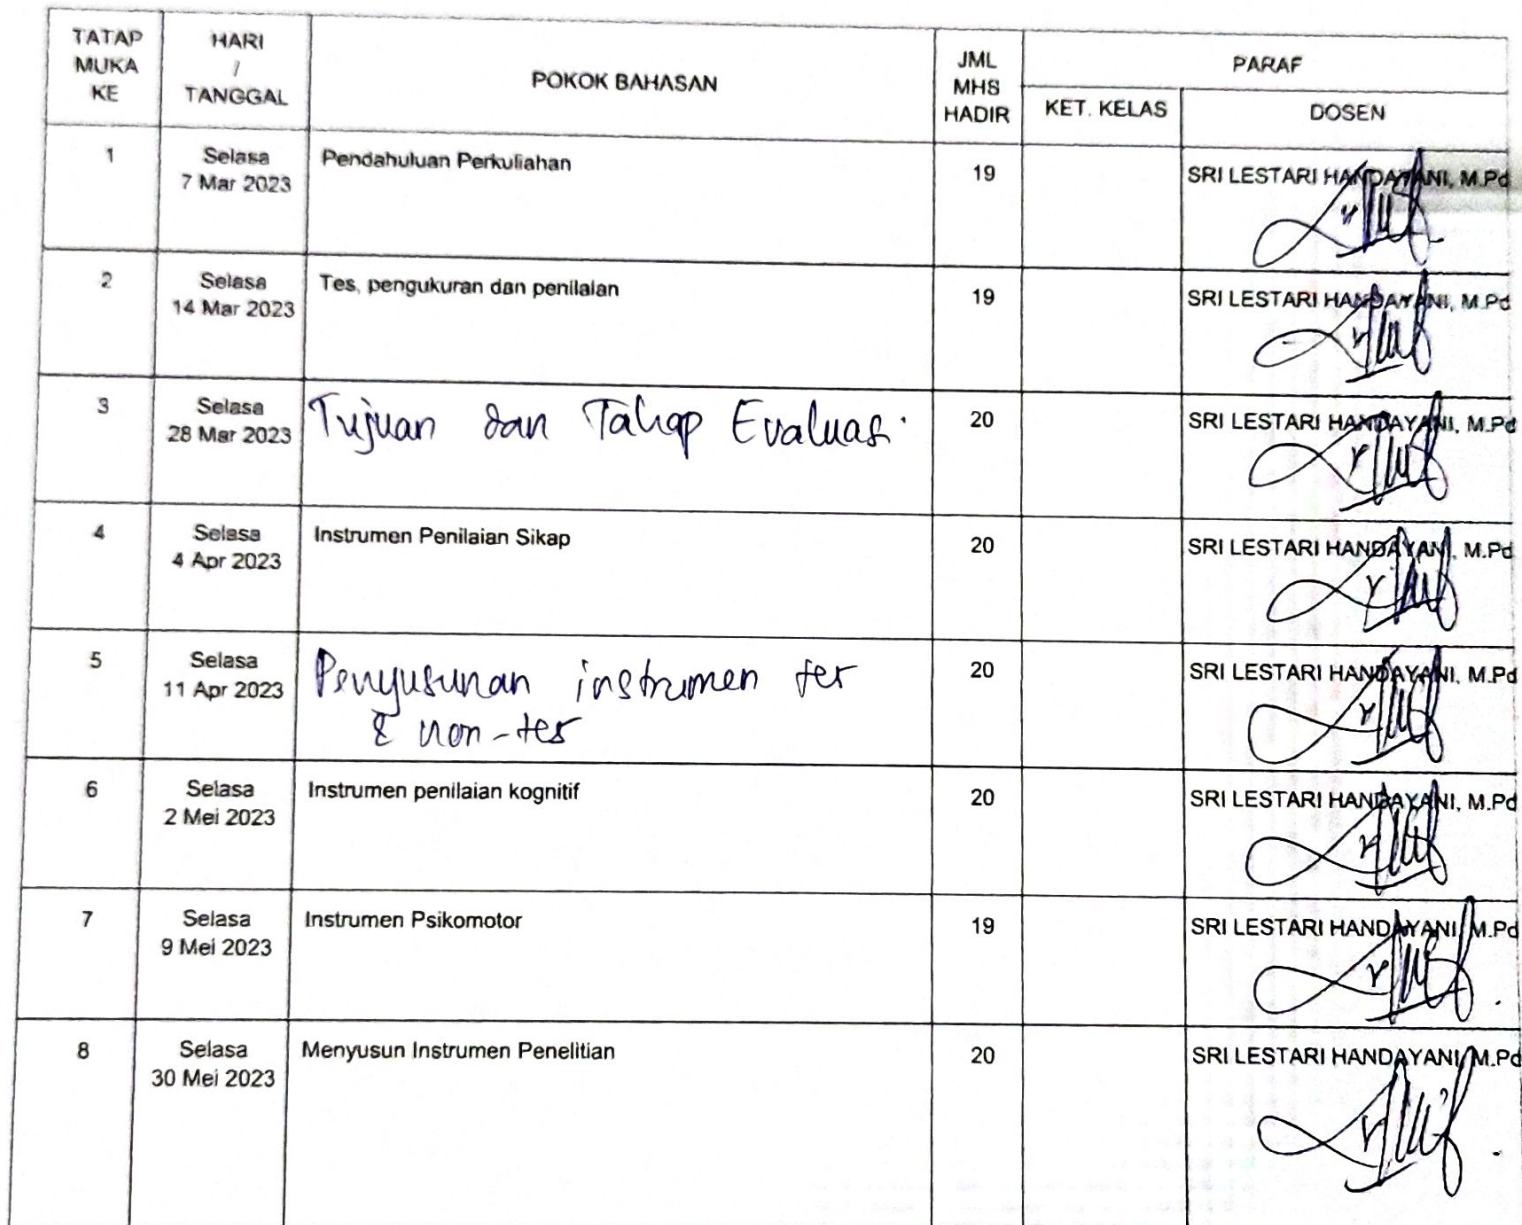 TATAP MUKA KE
HARI / TANGGAL
POKOK BAHASAN
JML MHS HADIR
PARAF
KET. KELAS
DOSEN
1
Selasa
7 Mar 2023
Pendahuluan Perkuliahan
19
SRI LESTARI HANDAYANI, M.Pd
2
Selasa
14 Mar 2023
Tes, pengukuran dan penilaian
19
SRI LESTARI HANDAYANI, M.Pd
3
Selasa
28 Mar 2023
Tujuan dan Tahap Evaluasi
20
SRI LESTARI HANDAYANI, M.Pd
4
Selasa
4 Apr 2023
Instrumen Penilaian Sikap
20
SRI LESTARI HANDAYANI, M.Pd
5
Selasa
11 Apr 2023
Penyusunan instrumen tes
& non-tes
20
SRI LESTARI HANDAYANI, M.Pd
6
Selasa
2 Mei 2023
Instrumen penilaian kognitif
20
SRI LESTARI HANDAYANI, M.Pd
7
Selasa
9 Mei 2023
Instrumen Psikomotor
19
SRI LESTARI HANDAYANI, M.Pd
8
Selasa
30 Mei 2023
Menyusun Instrumen Penelitian
20
SRI LESTARI HANDAYANI, M.Pd